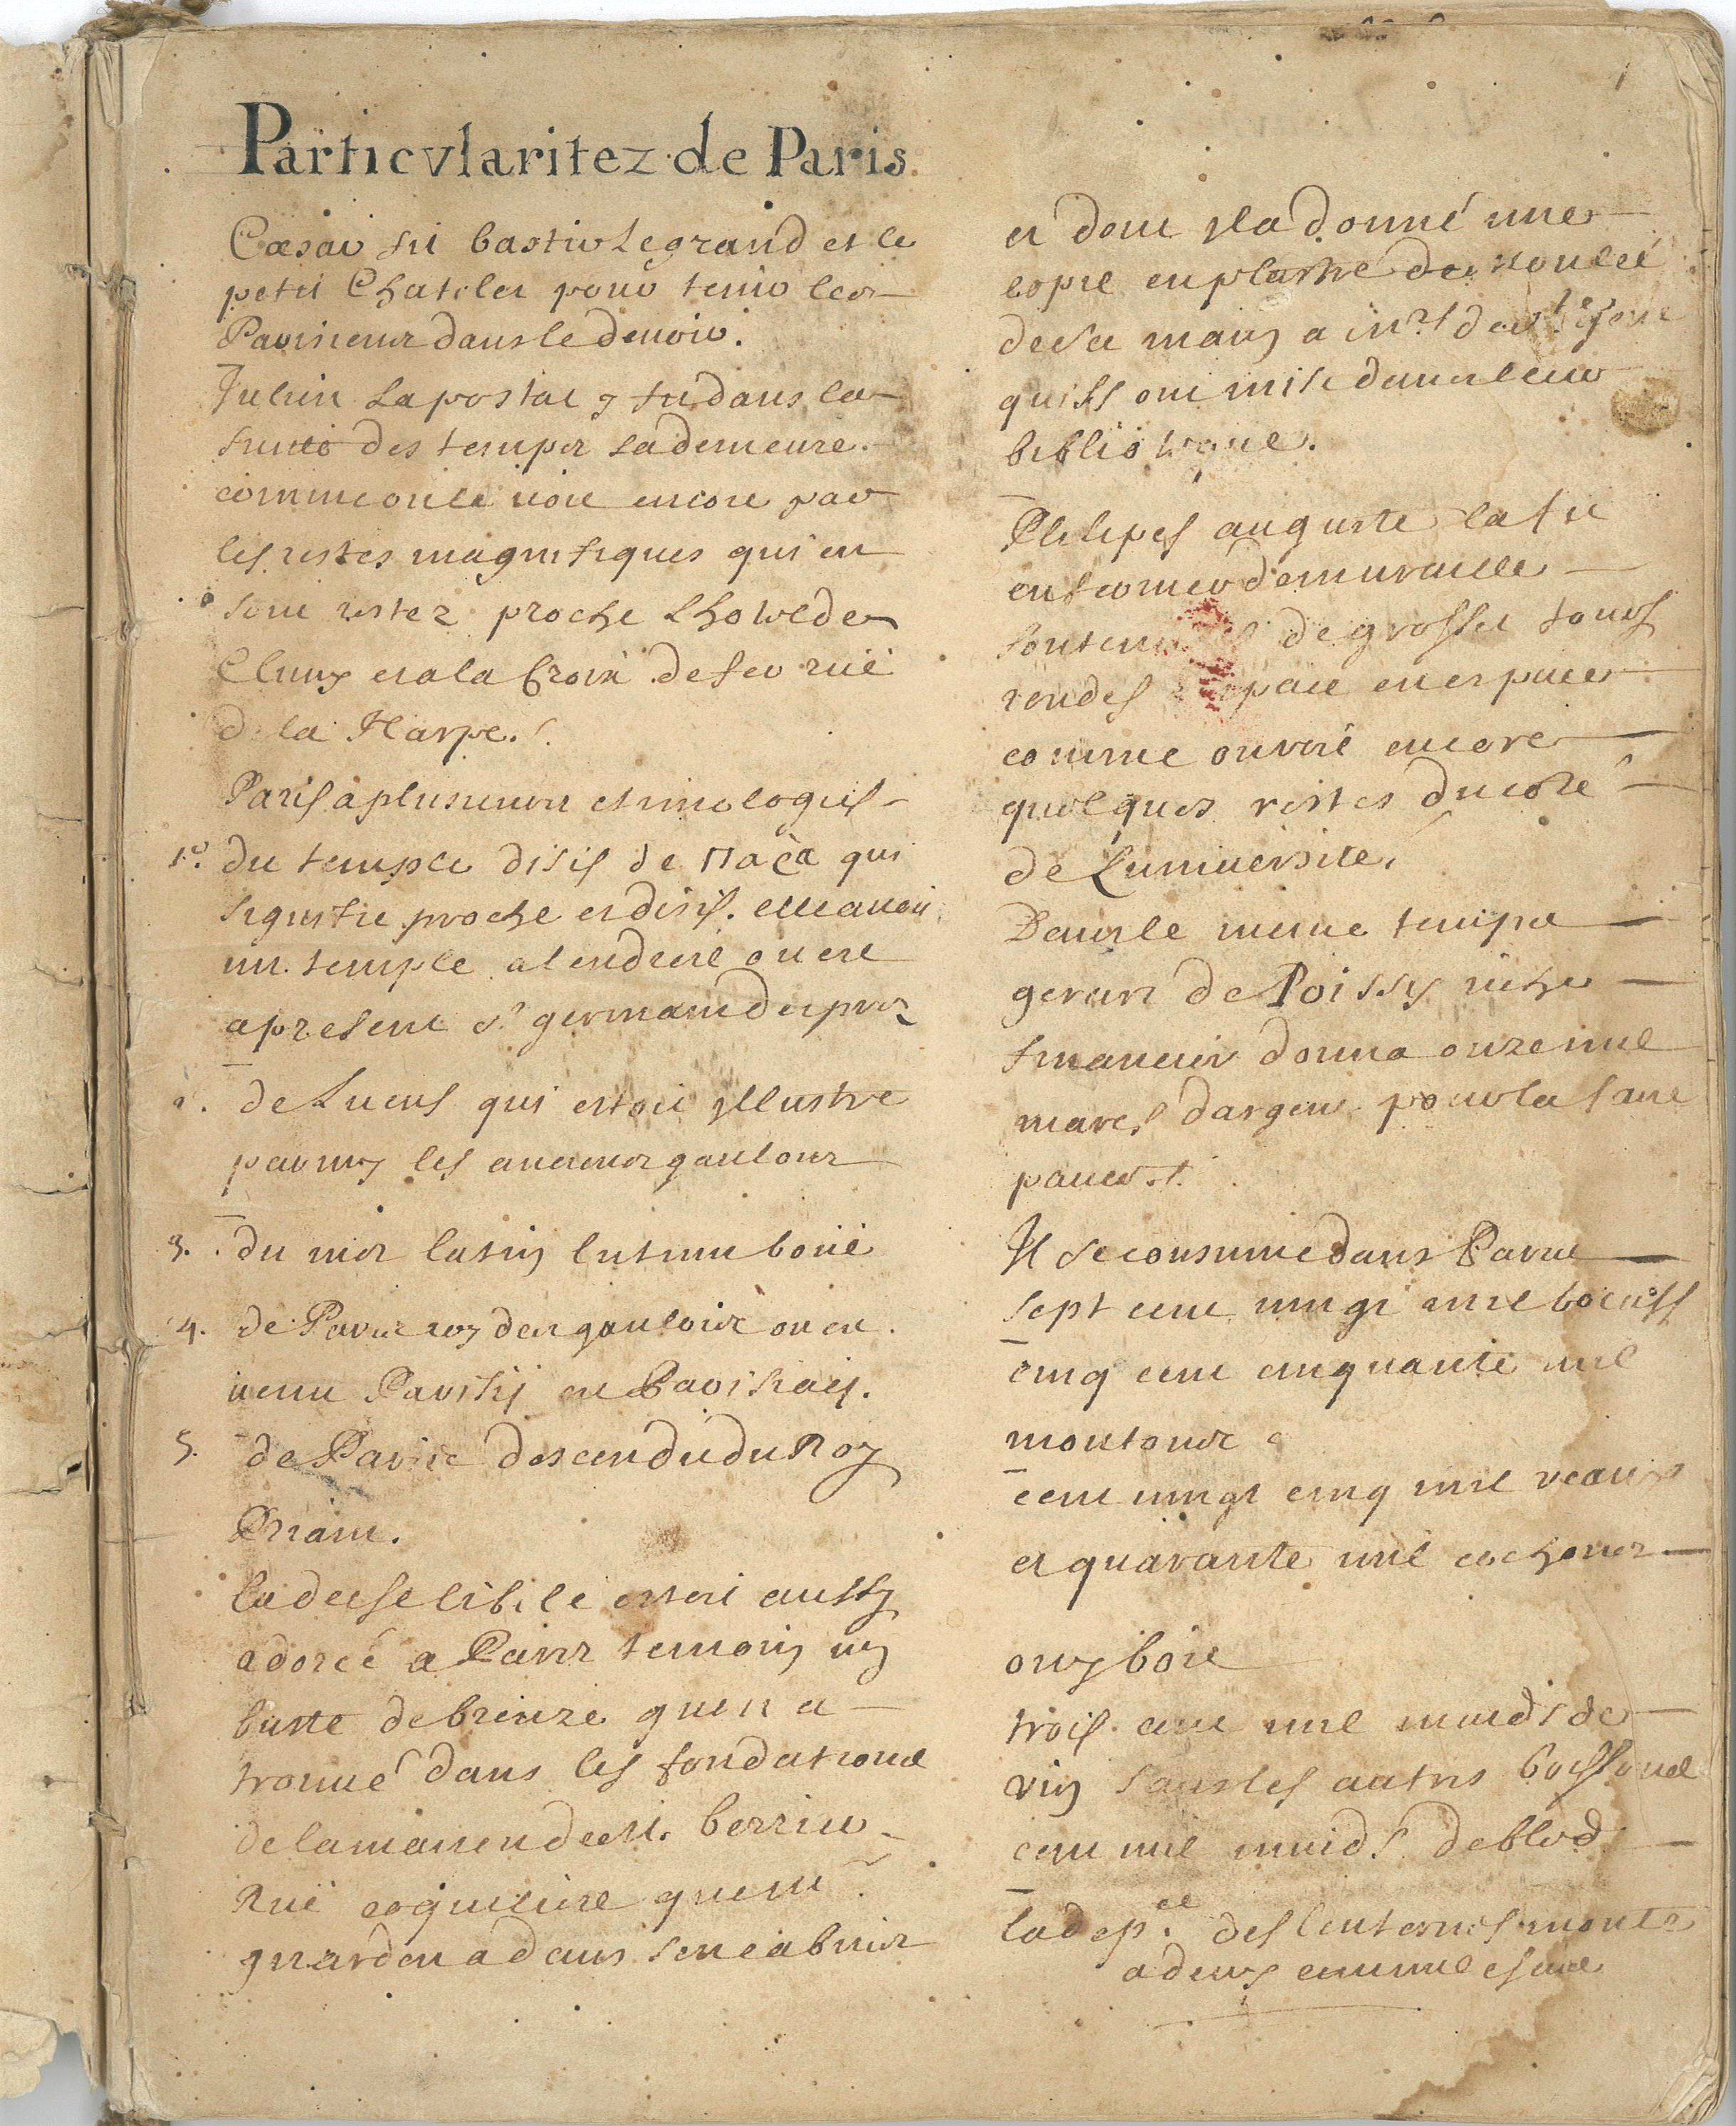 Particvlaritez de Paris
Cæsar fit bastir Le grand et le
petit Chatelet pour tenir les
Parisiens dans le devoir.
Julien Lapostat y fit dans la
suitte des temps sa demeure
comme on le voit encore par
les restes magnifiques qui en
sont restez proche Lhotel de
Cluny et a la Croix de fer ruë
de la Harpe.
Paris a plusieurs etimologies
1.º du temple disis de παρα qui
signifie proche et disis. elle avoit
un temple a lendroit ou est
apresent St germain des prez
2. de Lucus qui estoit jllustre
parmy les anciens gaulois
3. du mot latin lutum boüe
4. de Paris roy des gaulois on en
venu Parisij et Parisiacy.
5. de Paris descendu du Roy
Priam.
la deesse Cibele estoit aussy
adoreé a Paris temoin un
buste de bronze quon a
trouvé dans les fondations
de la maison de M. berrier
Ruë coquiliere quon
garden a dans son cabinet
et dont jl a donné une
copie en plastre de mouleé
de sa main a Mrs de Ste geneve
quils ont mise dans leur
bibliotheque.
Philipes auguste la fit
entourrer de muraille
soutenues de grosses tours
rondes despace en espace
comme on voit encore
quelques restes du coté
de Luniversite,
Dans le meme temps
gerard de Poissy riche
financier donna onze mil
marcs dargent pour la faire
paver.
Il se consume dans Paris
sept cent vingt mil boeufs
cinq cent cinquante mil
moutons
cent vingt cinq mil veaux
et quarante mil cochons
on y boit
trois cent mil muids de
vin sans les autres boissons
cent mil muids de bled
la depce des lenternes monte
a deux cent mil escus